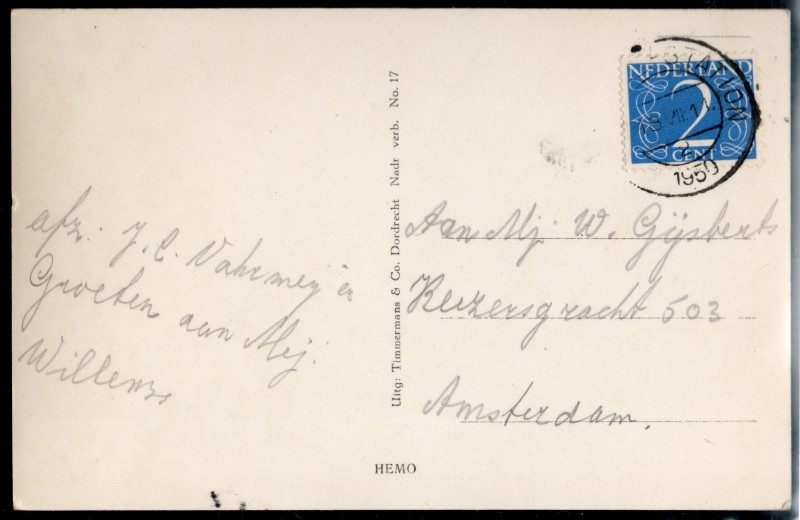 afz. J. C. Vahrmeyer
Groeten aan Mej.
Willems
Uitg: Timmermans & Co. Dordrecht Nadr verb. No. 17
HEMO
STATION
1950
NEDERLAND
2
CENT
Aan Mej. W. Gijsberts
Keizersgracht 503
Amsterdam.